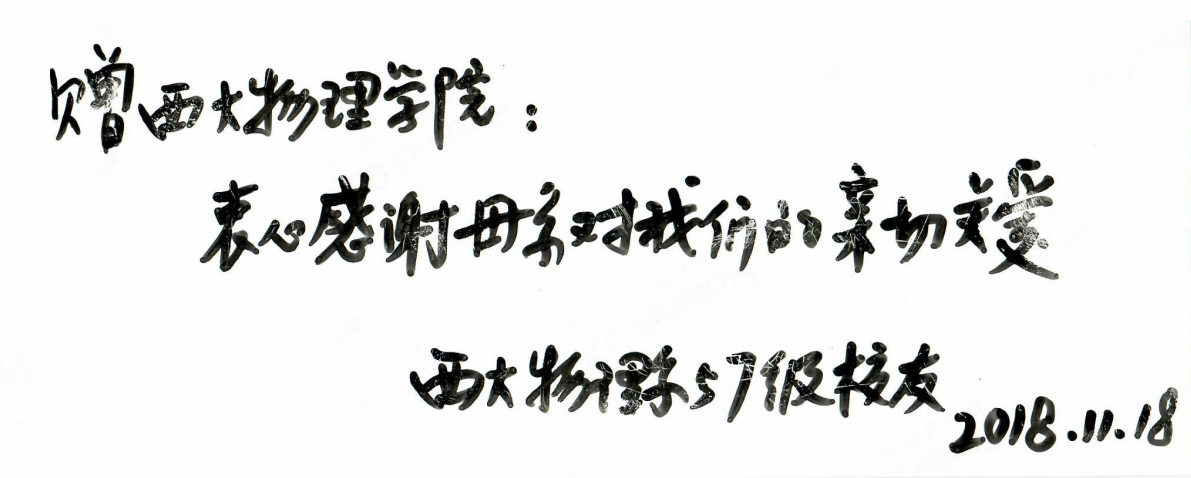 赠西大物理学院：
衷心感谢母系对我们的亲切关爱
西大物理系57级校友
2018.11.18